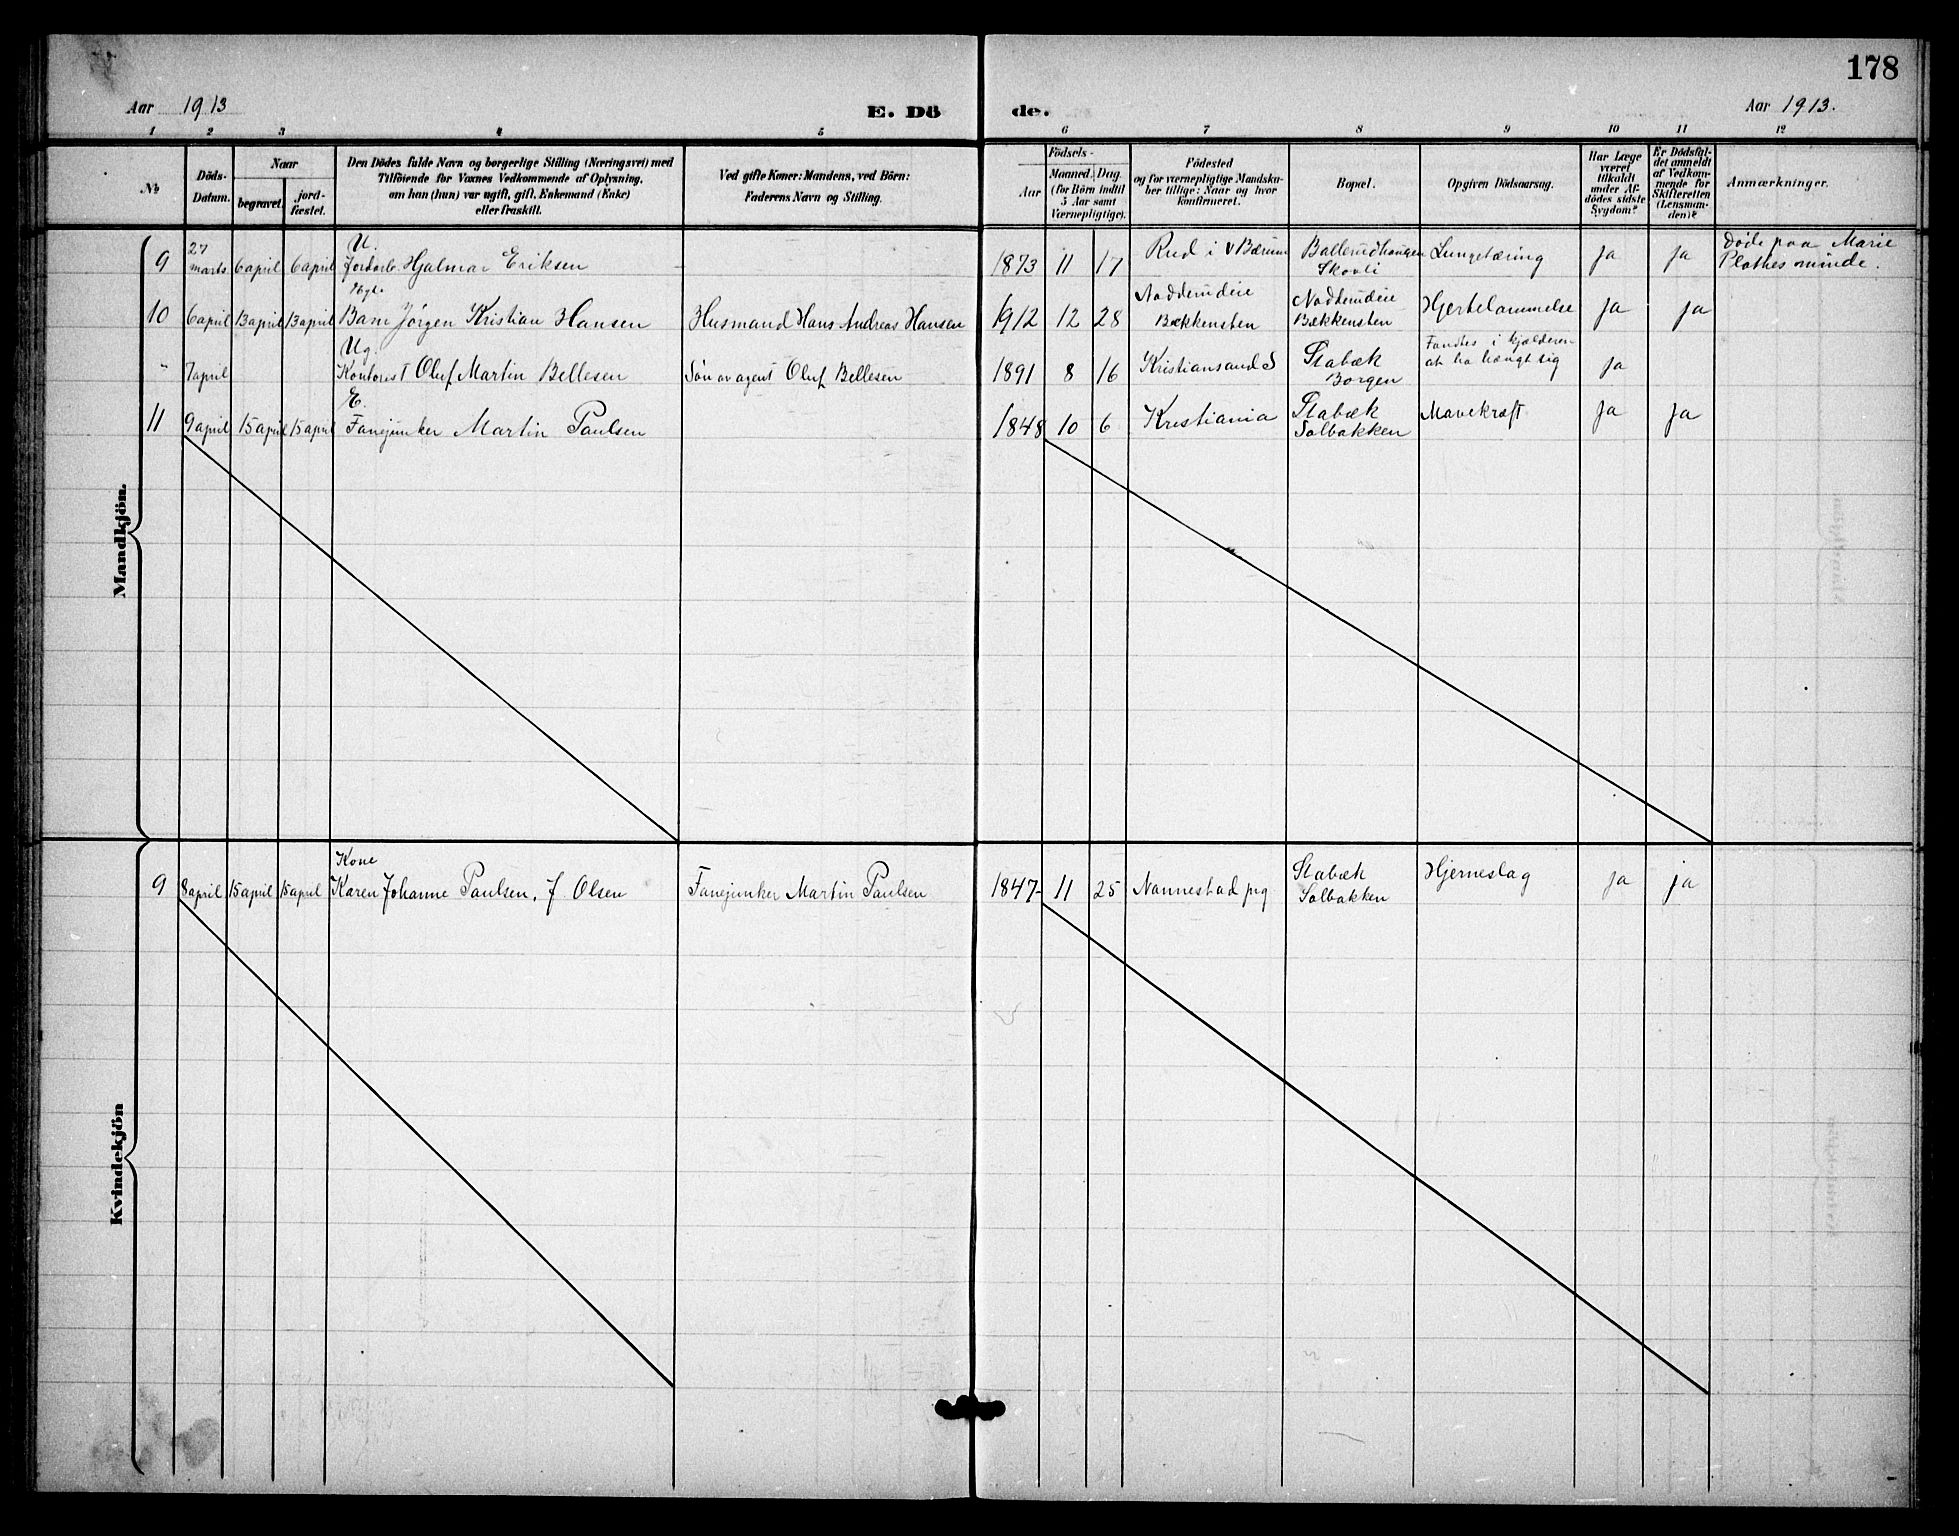 178
Aar 1913
E. Dö
de.
Aar 1913.
1 2 3 4 5 6 7 8 9 10 11 12
No
Döds-
Datum.
Naar
begravet.
jord-
fæstet.
Den Dödes fulde Navn og borgerlige Stilling (Næringsvei) med
Tilföiende for Voxnes Vedkommende af Oplysning,
om han (hun) var ugift, gift, Enkemand (Enke)
eller fraskilt.
Ved gifte Koner: Mandens, ved Börn:
Faderens Navn og Stilling.
Födsels-
Aar
Maaned. Dag.
(for Börn indtil
5 Aar samt
Værnepligtige).
Födested
og for værnepligtige Mandska-
ber tillige: Naar og hvor
konfirmeret.
Bopæl.
Opgiven Dödsaarsag.
Har Læge
været
tilkaldt
under Af-
dödes sidste
Sygdom?
Er Dödsfal-
det anmeldt
af Vedkom-
mende for
Skifteretten
(Lensman-
den)?
Anmærkninger.
Mandkjön.
U.
9 27 marts 6 april 6 april Jordarb. Hjalmar Eriksen 1873 11 17 Rud i V Bærum Ballerudhaugen Skovli Lungetæring Ja Ja Døde paa Marie
Plathes minde.
10 6 april 13 april 13 april Barn Jørgen Kristian Hansen Husmand Hans Andreas Hansen 1912 12 28 Nadderudeie Bækkensten Nadderudeie Bækkensten Hjertelammelse Ja Ja
Ug.
" 7 april Kontorist Oluf Martin Bellesen Søn av agent Oluf Bellesen 1891 8 16 Kristiansand S Stabæk Borgen Fandtes i kjælderen
at ha hængt sig Ja
E.
11 9 april 15 april 15 april Fanejunker Martin Paulsen 1848 10 6 Kristiania Stabæk Solbakken Mavekræft Ja Ja
Kvindekjön
Kone
9 8 april 15 april 15 april Karen Johanne Paulsen, f. Olsen Fanejunker Martin Paulsen 1847 11 25 Nannestad pg Stabæk Solbakken Hjerneslag Ja ja